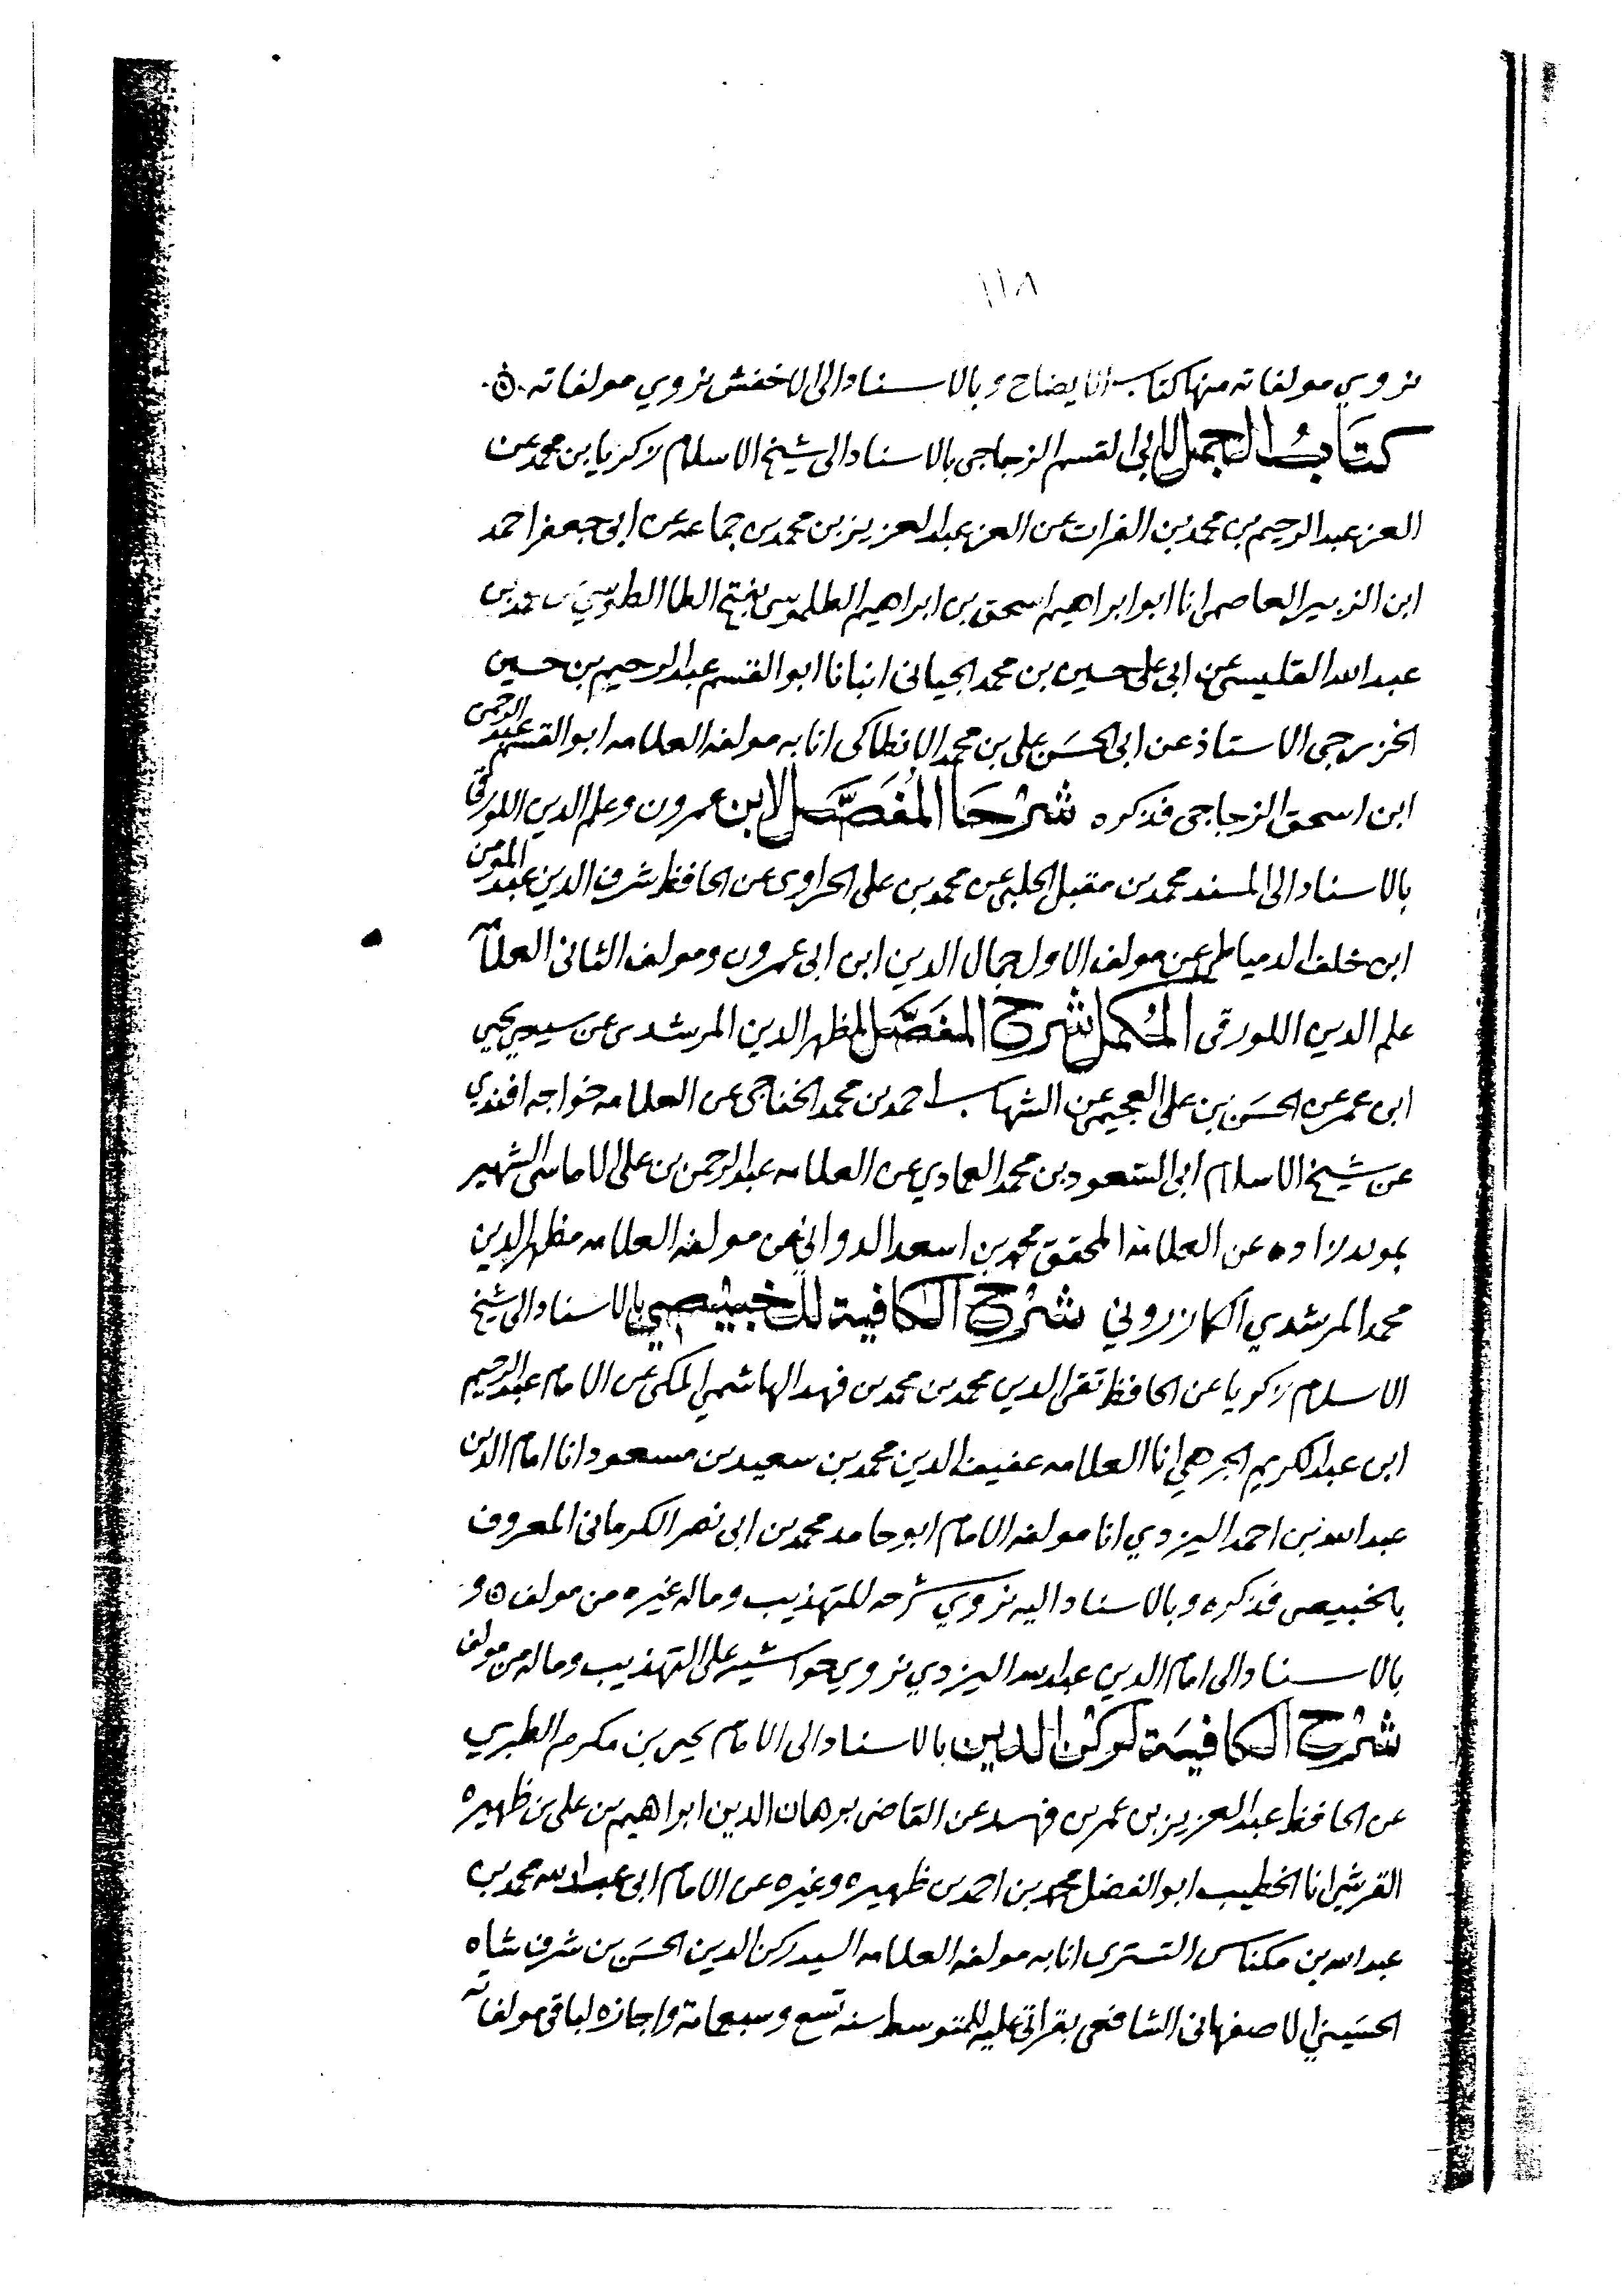 ١١٨
نروي مولفاته منها كتاب الايضاح وبالاسناد الى الاخفش نروي مولفاته
كتاب الجمل لابي القسم الزجاجي بالاسناد الى شيخ الاسلام زكريا بن محمد عن
العز عبد الرحيم بن محمد بن الفرات عن العز عبد العزيز بن محمد بن جماعه عن ابي جعفر احمد
ابن الزبير العاصمي انا ابو ابراهيم اسحق بن ابراهيم الطلموسي بفتح الطا الطوسي محمد بن
عبد الله القليسي عن ابي علي حسين بن محمد الجياني انبانا ابو القسم عبد الرحيم بن حسين
الخزرجي الاستاذ عن ابي الحسن علي بن محمد الانطاكي انا به مولفه العلامه ابو القسم عبد الرحمن
ابن اسحق الزجاجي فذكره شرحا المفصل لابن عمرون وعلم الدين اللورقي
بالاسناد الى المسند محمد بن مقبل الحلبي عن محمد بن علي الحراوي عن الحافظ شرف الدين عبد المومن
ابن خلف الدمياطي عن مولف الاول جمال الدين ابن ابي عمرون ومولف الثاني العلامة
علم الدين اللورقي المكمل شرح المفصل لمظهر الدين المرشدي عن سيدي يحيى
ابن عمر عن الحسن بن علي العجيمي عن الشهاب احمد بن محمد الخفاجي عن العلامه خواجه افندي
عن شيخ الاسلام ابي السعود بن محمد العمادي عن العلامه عبد الرحمن بن علي الاماسي الشهير
بمويد زاده عن العلامة المحقق محمد بن اسعد الدواني عن مولفه العلامه مظهر الدين
محمد المرشدي الكازروني شرح الكافية للخبيصي بالاسناد الى شيخ
الاسلام زكريا عن الحافظ تقي الدين محمد بن محمد بن فهد الهاشمي المكي عن الامام عبد الرحيم
ابن عبد الكريم الجرهي انا العلامه عفيف الدين محمد بن سعيد بن مسعود انا امام الدين
عبد الله بن احمد اليزدي انا مولفه الامام ابو حامد محمد بن ابي نصر الكرماني المعروف
بالخبيصي فذكره وبالاسناد اليه نروي شرحه للتهذيب وماله غيره من مولف ٥ و
بالاسناد الى امام الدين عبد الله اليزدي نروي حواشيه على التهذيب وماله من مولف
شرح الكافية لركن الدين بالاسناد الى الامام يحيى بن مكرم الطبري
عن الحافظ عبد العزيز بن عمر بن فهد عن القاضي برهان الدين ابراهيم بن علي بن ظهيره
القرشي انا الخطيب ابو الفضل محمد بن احمد بن ظهيره وغيره عن الامام ابي عبد الله محمد بن
عبد الله بن مكناس التستري انا به مولفه العلامه السيد ركن الدين الحسن بن شرف شاه
الحسيني الاصفهاني الشافعي بقراتي عليه للمتوسط سنه تسع وسبعماية واجازه لباقي مولفاته